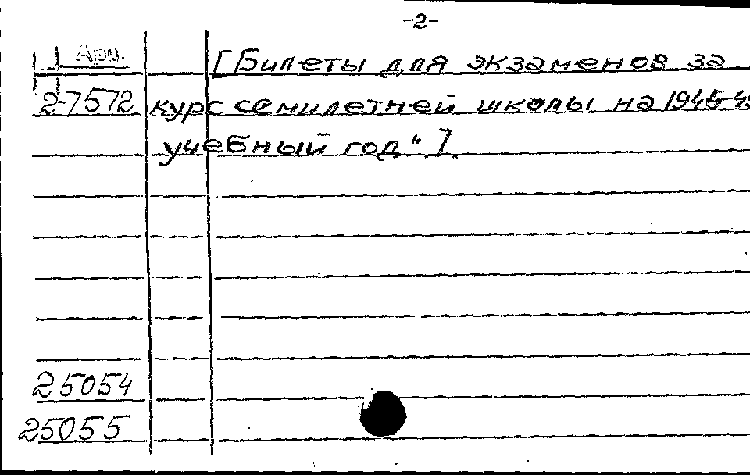 -2-
Арм. [Билеты для экзаменов за
2-7572 курс семилетней школы на 1945-
учебный год"].
25054
25055